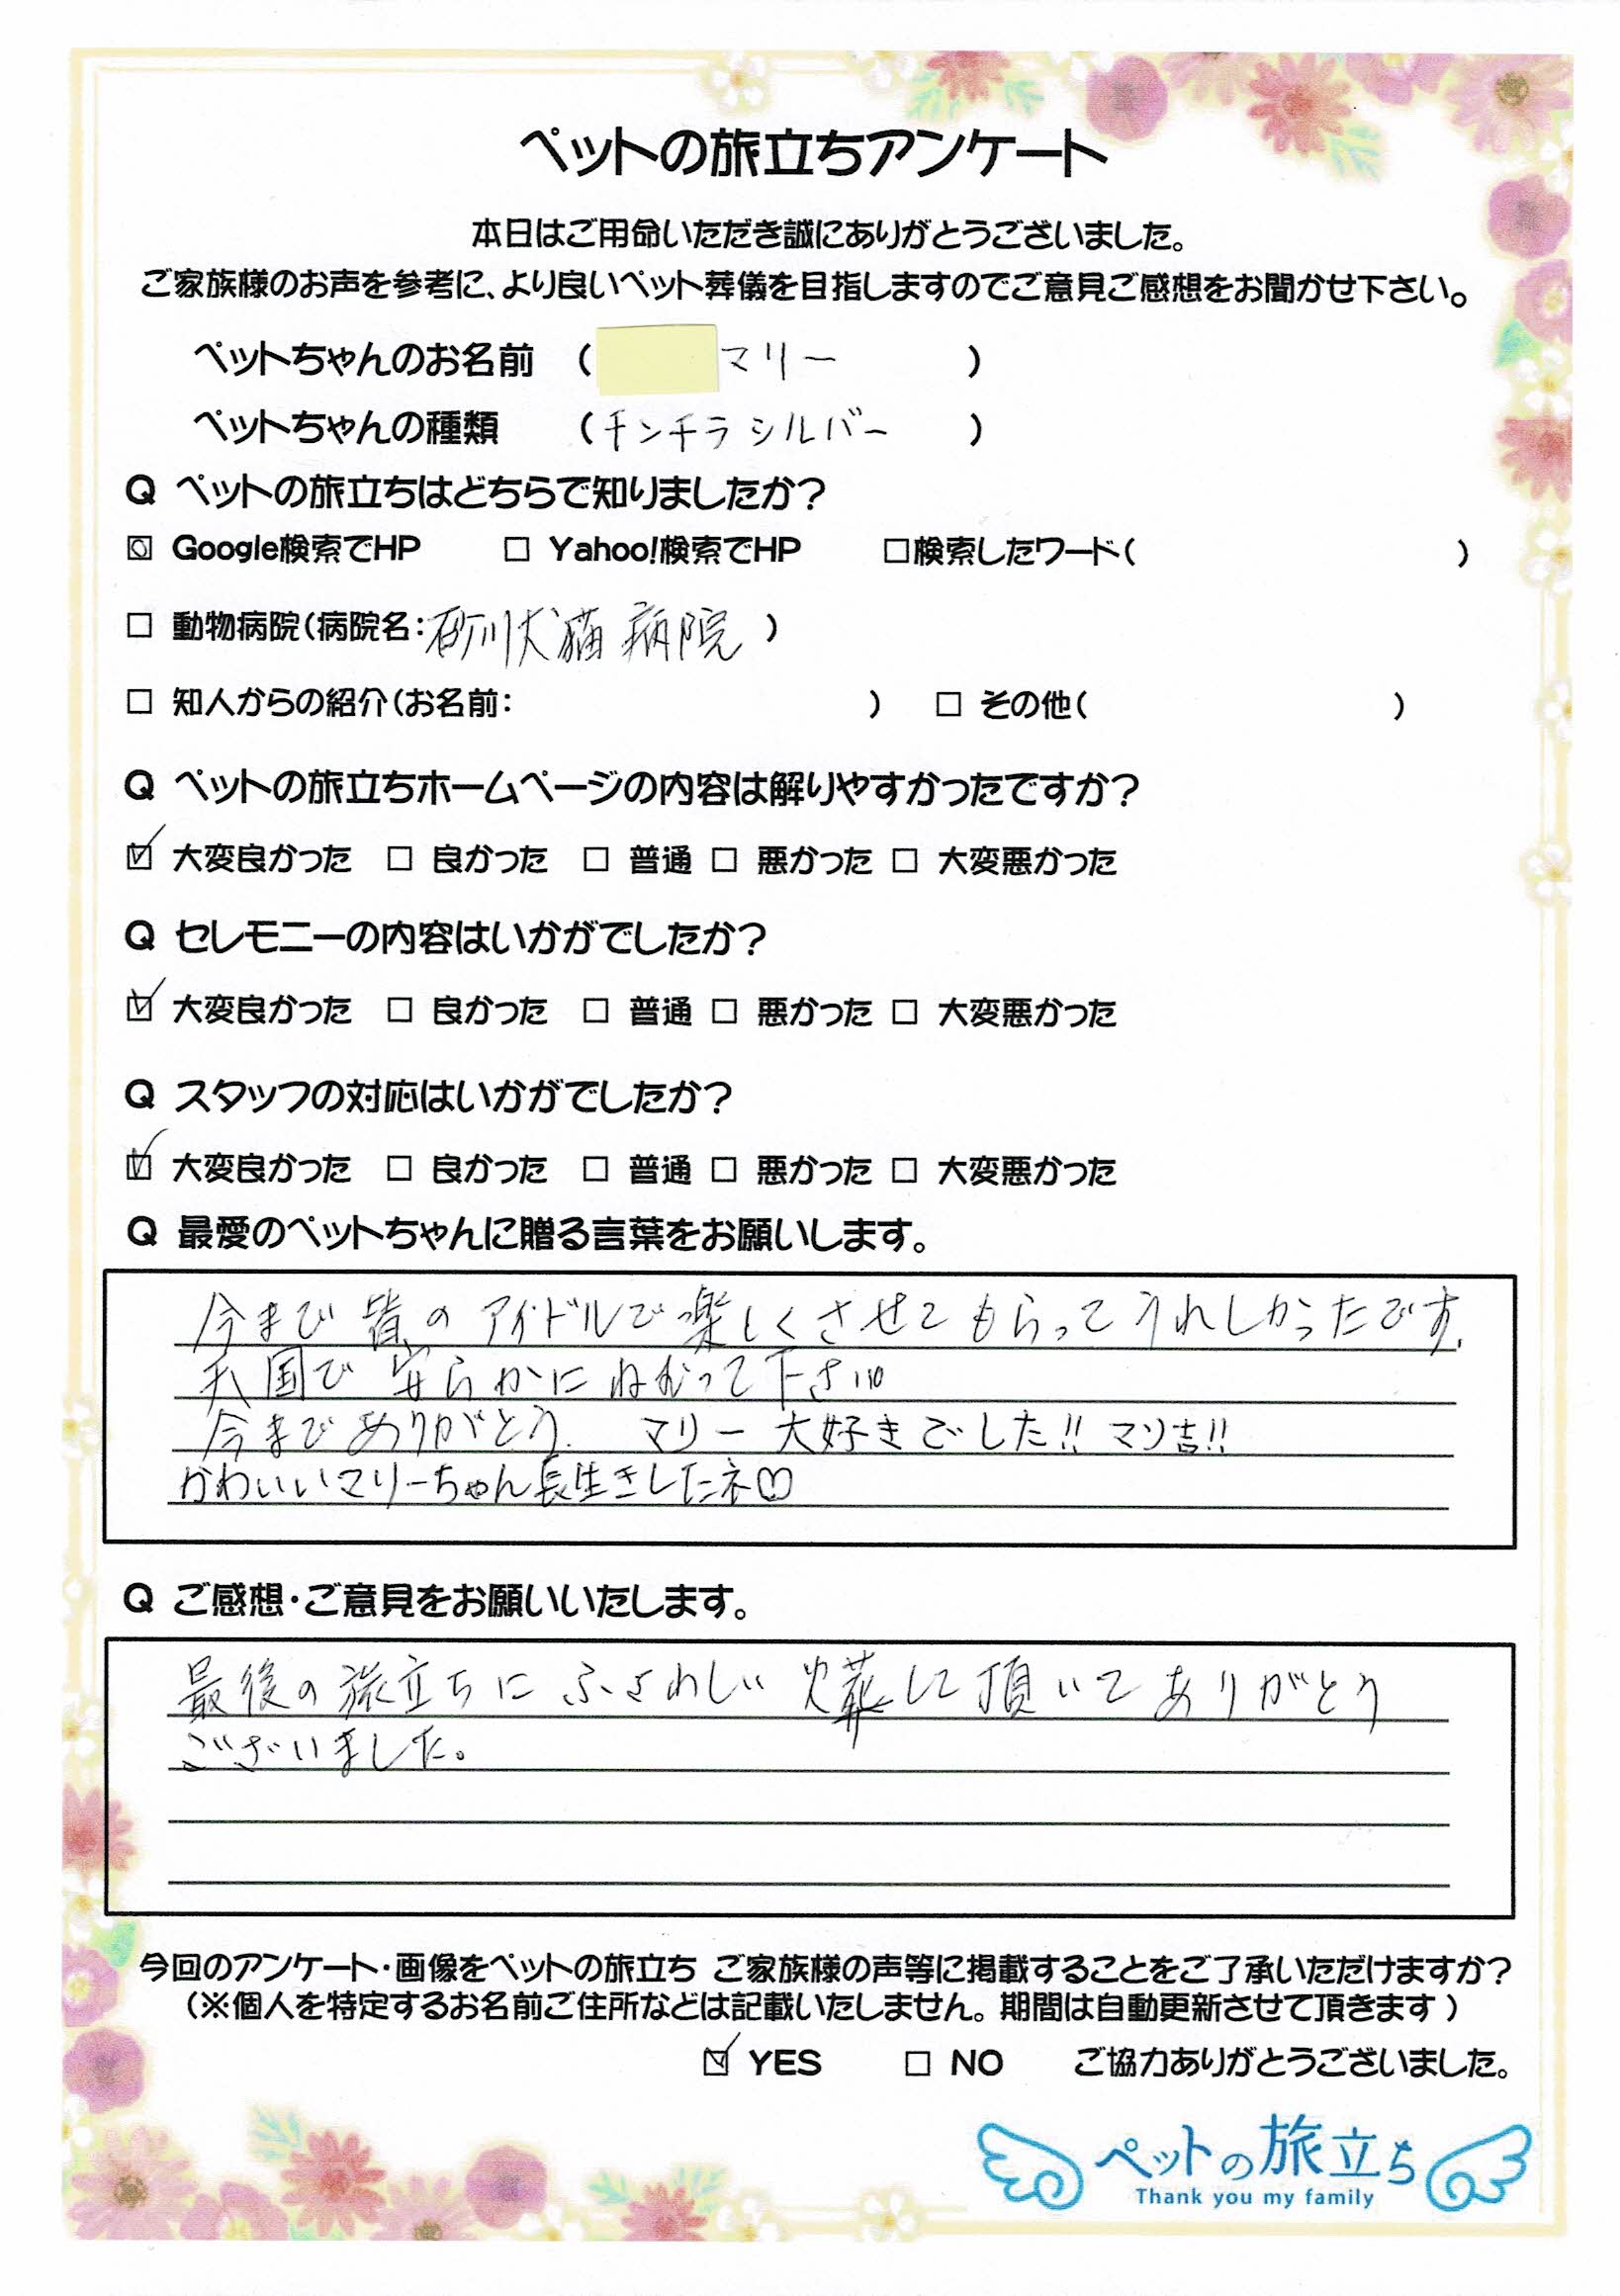 ペットの旅立ちアンケート
本日はご用命いただき誠にありがとうございました。
ご家族様のお声を参考に、より良いペット葬儀を目指しますのでご意見ご感想をお聞かせ下さい。
ペットちゃんのお名前 ( マリー )
ペットちゃんの種類 (チンチラシルバー )
Q ペットの旅立ちはどちらで知りましたか?
☑ Google検索でHP □ Yahoo!検索でHP □検索したワード( )
□ 動物病院(病院名:砂川犬猫病院 )
□ 知人からの紹介(お名前: ) □ その他( )
Q ペットの旅立ちホームページの内容は解りやすかったですか?
☑ 大変良かった □ 良かった □ 普通 □ 悪かった □ 大変悪かった
Q セレモニーの内容はいかがでしたか?
☑ 大変良かった □ 良かった □ 普通 □ 悪かった □ 大変悪かった
Q スタッフの対応はいかがでしたか?
☑ 大変良かった □ 良かった □ 普通 □ 悪かった □ 大変悪かった
Q 最愛のペットちゃんに贈る言葉をお願いします。
今まで皆のアイドルで楽しくさせてもらってうれしかったです.
天国で安らかにねむって下さい。
今までありがとう. マリー大好きでした!! マソ吉!!
かわいいマリーちゃん長生きしたネ♡
Q ご感想・ご意見をお願いいたします。
最後の旅立ちにふさわしい火葬して頂いてありがとう
ございました。
今回のアンケート・画像をペットの旅立ち ご家族様の声等に掲載することをご了承いただけますか?
(※個人を特定するお名前ご住所などは記載いたしません。期間は自動更新させて頂きます)
☑ YES □ NO ご協力ありがとうございました。
ペットの旅立ち
Thank you my family